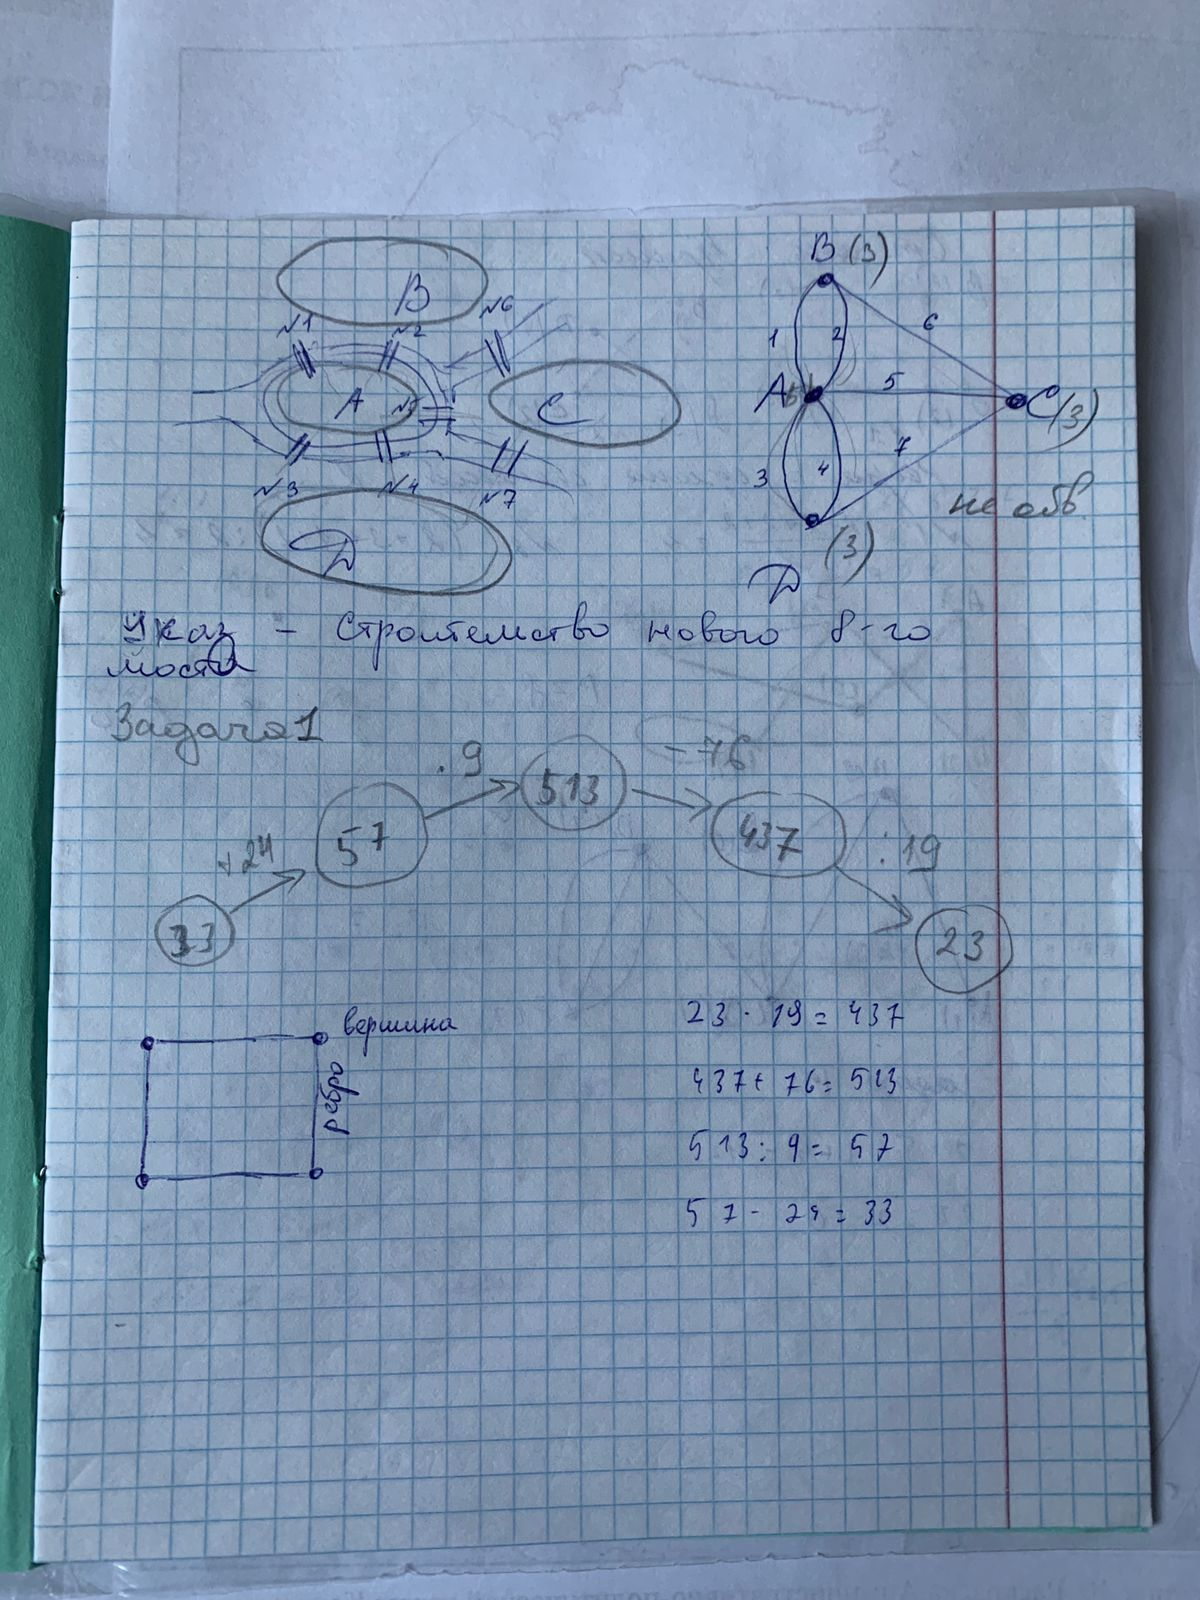 B
N1 N2 N6
A N5 C
N3 N4 N7
D
B (3)
1 2 6
A 5 C (3)
3 4 7
(3)
D
не обв
Указ - Строительство нового 8-го
моста
Задача 1
+24 · 9 - 76 : 19
33 57 513 437 23
вершина
ребро
23 · 19 = 437
437 + 76 = 513
513 : 9 = 57
57 - 24 = 33